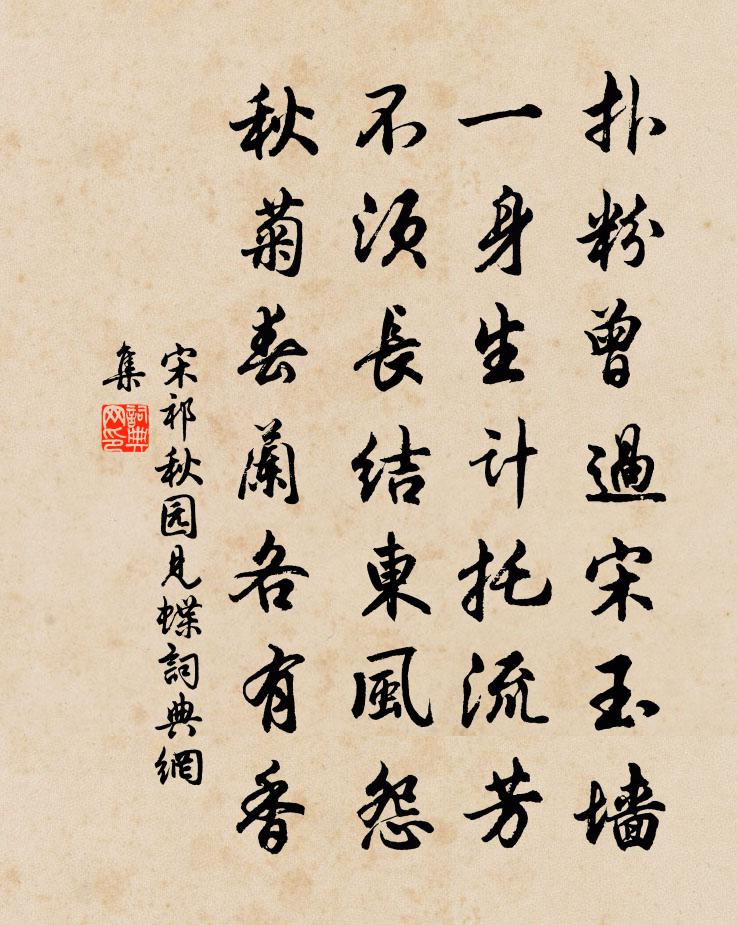 扑粉曾過宋玉墙
一身生计托流芳
不须長结東風怨
秋菊春蘭各有香
宋祁秋园见蝶詞典網
集
詞典网印